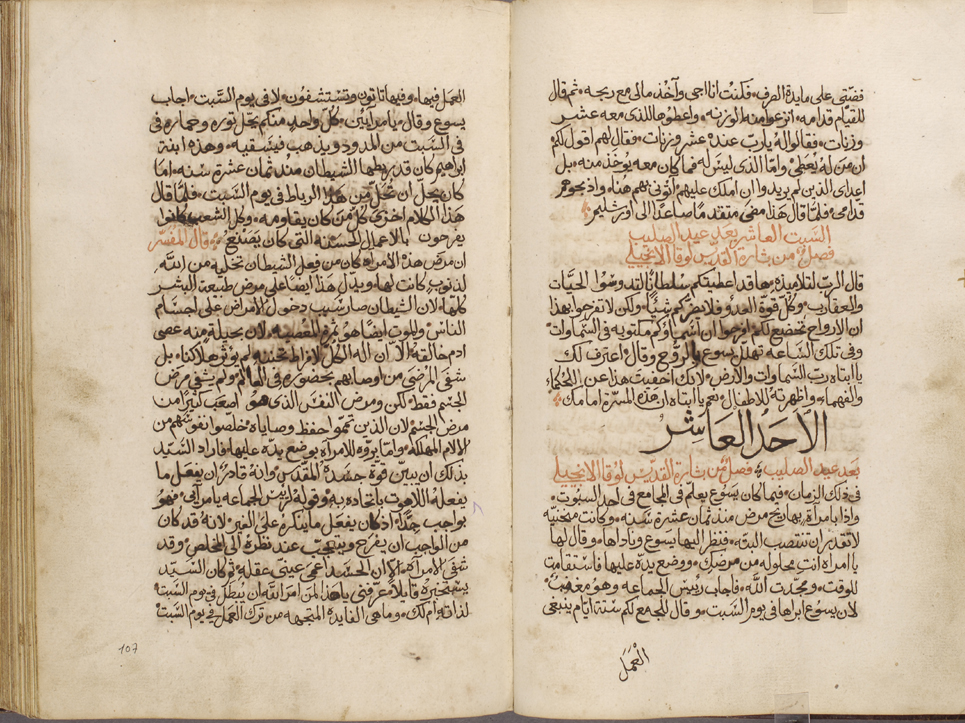 فضتى على مايدة الصرف٠ فكنت انا اجى وآخذ مالى مع ربحه٠ ثم قال
للقيام قدامه٠ انزعوا منه الوزنه٠ واعطوها للذى معه عشر
وزنات٠ فقالوا له يارب عنده عشر وزنات٠ فقال لهم اقول لكم
ان من له يُعطى٠ وامّا الذى ليس له فما كان معه يوخذ منه٠ بل
اعداى الذين لم يريدوا ان املك عليهم اتونى بهم هنا٠ واذبحوهم
قدامى٠ فلمّا قال هذا مضى متقدمًا صاعدًا الى اورشليم
السبت العاشر بعد عيد الصليب
فصل من بشارة القديس لوقا الانجيلى
قال الرب لتلاميذه٠ ها قد اعطيتكم سلطانًا لتدوسوا الحيات
والعقارب٠ وكل قوة العدو فلا يضركم شيًا٠ ولكن لا تفرحوا بهذا
ان الارواح تخضع لكم افرحوا ان اسماؤكم مكتوبه فى السماوات
وفى تلك الساعه تهلل يسوع بالروح وقال٠ اعترف لك
يا ابتاه رب السماوات والارض٠ لانك اخفيت هذا عن الحكماء
والفهماء٠ واظهرته للاطفال٠ نعم يا ابتاه ان هذه المسرة امامك
الاحد العاشر
بعد عيد الصليب فصل من بشارة القديس لوقا الانجيلى
فى ذلك الزمان٠ فيما كان يسوع يعلم فى المجامع فى احد السبوت٠
واذا بامراة٠ بها ريح مرض منذ ثمان عشرة سنه٠ وكانت منحنيه
لا تقدر ان تنتصب البته٠ فنظر اليها يسوع وناداها٠ وقال لها
يا امراه انتِ محلوله من مرضك٠ ووضع يده عليها فاستقامت
للوقت٠ ومجدت الله٠ فاجاب رئيس الجماعه وهو مغضب
لان يسوع ابراها فى يوم السبت٠ وقال للجمع لكم ستة ايام ينبغى
العمل
العمل فيها٠ وفيها تاتون وتستشفون٠ لا فى يوم السبت٠ اجاب
يسوع وقال٠ يا مرآيين٠ كل واحدٍ منكم يحل ثوره وحماره فى
فى السبت من المدود ويذهب فيسقيه٠ وهذه ابنة
ابراهيم كان قد ربطها الشيطان منذ ثمان عشرة سنه٠ اما
كان يحل ان تحل من هذا الرباط فى يوم السبت٠ فلما قال
هذا الكلام اخزى كل من كان يقاومه٠ وكل الشعب كانوا
يفرحون بالاعمال الحسنه التى كان يصنع٠ قال المفسر
ان مرض هذه الامراه كان من فعل الشيطان بتخلية من الله٠
لذنوب كانت لها٠ ويدل هذا ايضًا على مرض طبيعة البشر
كلها٠ لان الشيطان صار سبب دخول الامراض على اجسام
الناس والموت ايضًا هو ثمرة المعصيه٠ لان بحيلة منه عصى
ادم خالقه٠ الا ان اله الكل لافراط تحننه لم يؤثر هلاكنا٠ بل
شفى المرضى من اوصابهم بحضوره فى العالم٠ ولم يشفى مرض
الجسم فقط٠ لكن ومرض النفس الذى هو اصعب كثيرًا من
مرض الجسم٠ لان الذين تمموا حفظ وصاياه٠ خلصوا نفوسهم من
الالام المهلكه٠ واما بروّه للامراه بوضع يده عليها فاراد السيد
بذلك ان يبين قوة جسده المقدس٠ وانه قادر ان يفعل ما
يفعله اللاهوت باتحاده به٠ وقوله لرئيس الجماعه يا مرآى٠ فهو
بواجب جدًا٠ اذ كان يفعل ما ينكره على الغير٠ لانه قد كان
من الواجب ان يفرح ويتعجب عند نظره الى المخلص وقد
شفى الامراه٠ الا ان الحسد اعمى عينى عقله٠ ثم كان السيد
يستخبره قايلًا٠ عرفنى يا هذا لمن امر الله ان يبطل فى يوم السبت
لذاته ام لك٠ وما هى الفايدة المتجهه من ترك العمل فى يوم السبت
107